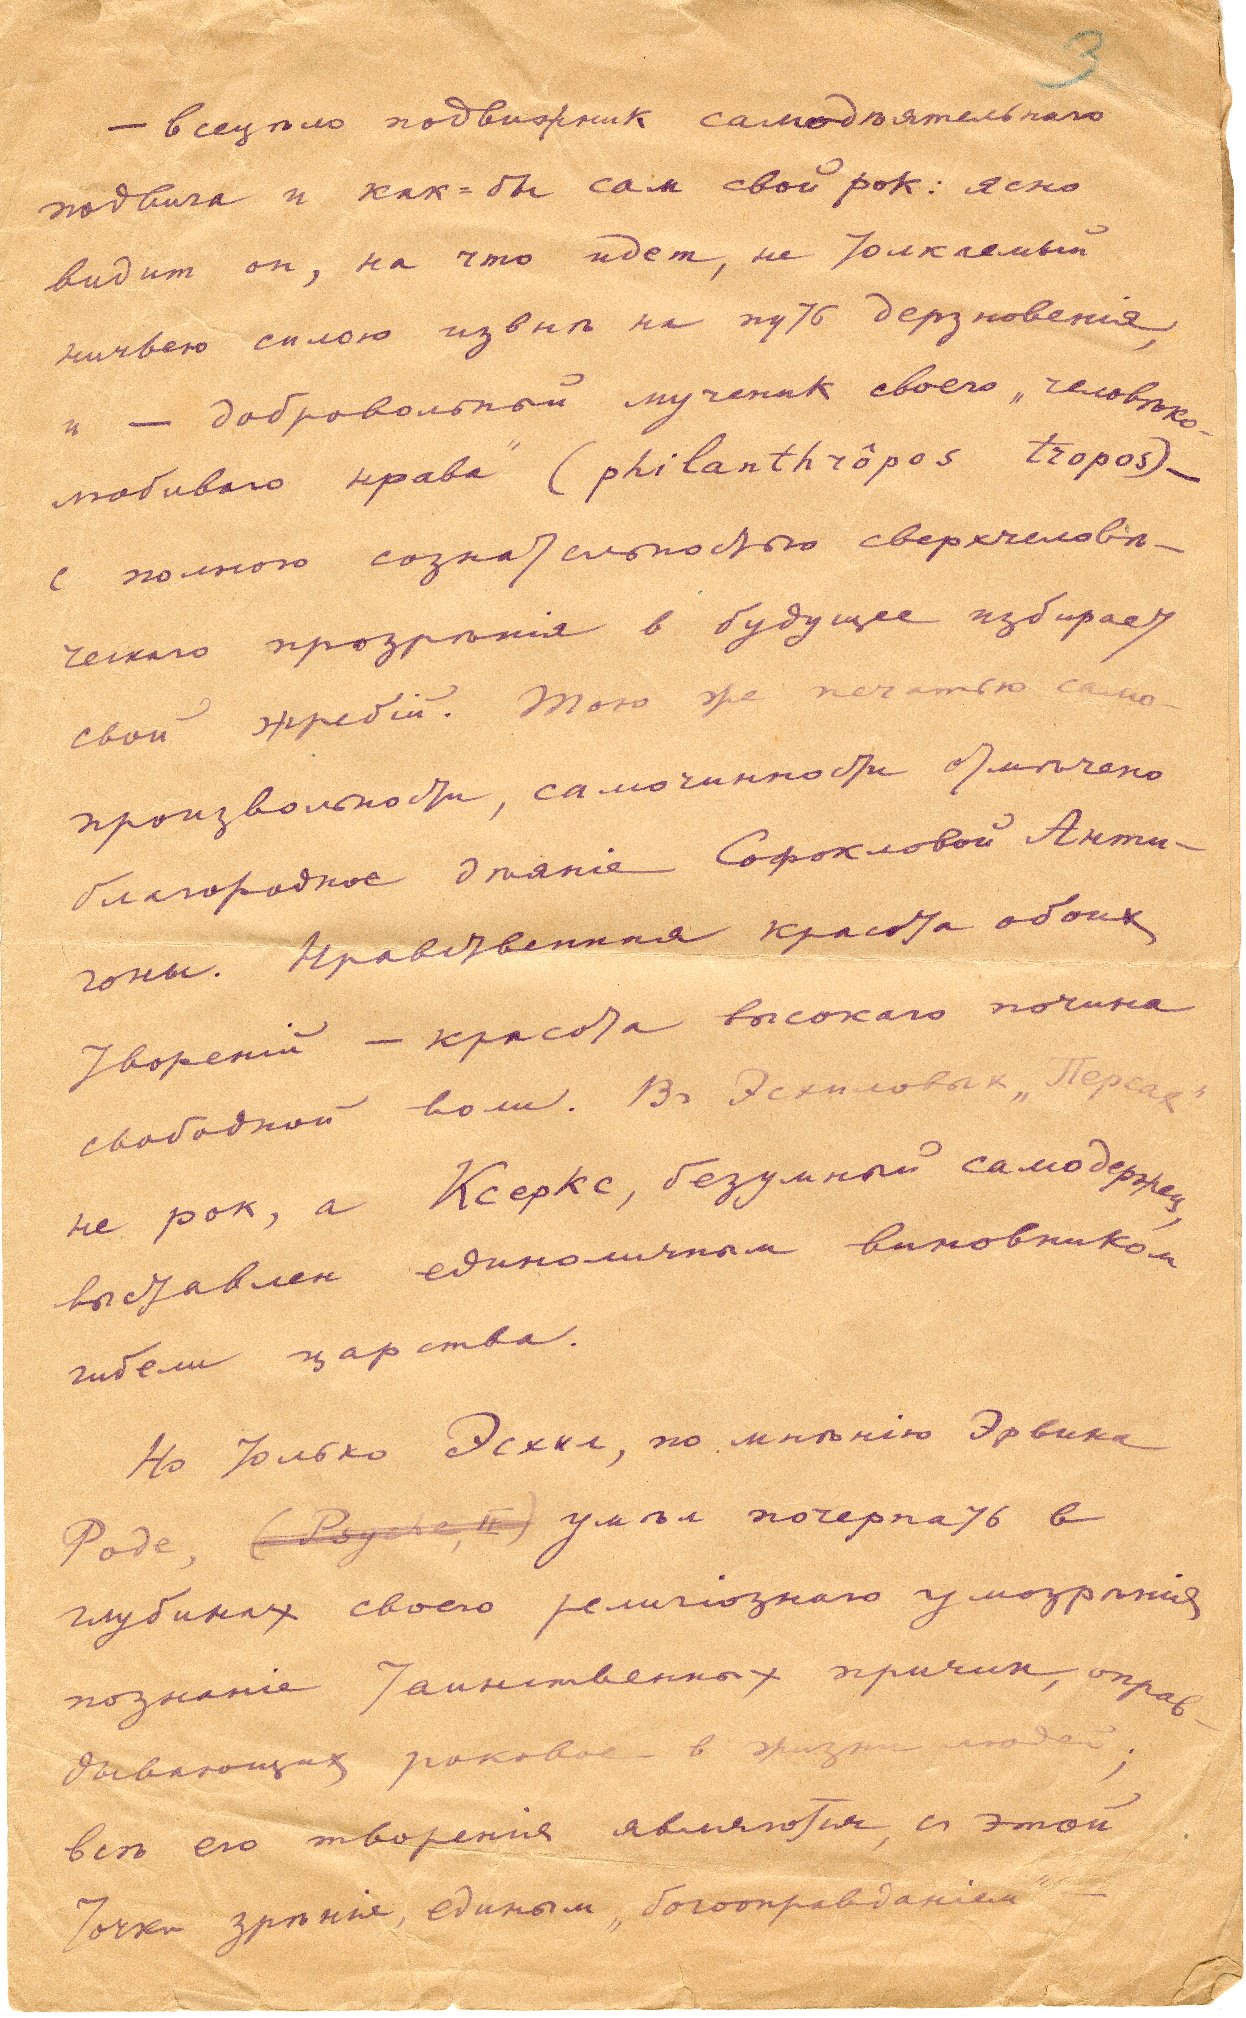 3
— всецѣло подвижник самодѣятельнаго
подвига и как=бы сам свой рок: ясно
видит он, на что идет, не толкаемый
ничьею силою извнѣ на путь дерзновенія,
и — добровольный мученик своего „человѣко-
любиваго нрава" (philanthrôpos tropos) —
с полною сознательностью сверхчеловѣ-
ческаго прозрѣнія в будущее избирает
свой жребій. Тою же печатью само-
произвольности, самочинности отмѣчено
благородное дѣяніе Софокловой Анти-
гоны. Нравственная красота обоих
твореній — красота высокаго почина
свободной воли. Въ Эсхиловых „Персах"
не рок, а Ксеркс, безумный самодержец,
выставлен единоличным виновником
гибели царства.
Но только Эсхил, по мнѣнію Эрвина
Роде, (Psyche, II) умѣл почерпать в
глубинах своего религіознаго умозрѣнія
познаніе таинственных причин, оправ-
дывающих роковое в жизни людей;
всѣ его творенія являются, съ этой
точки зрѣнія, единым „богооправданіем" —